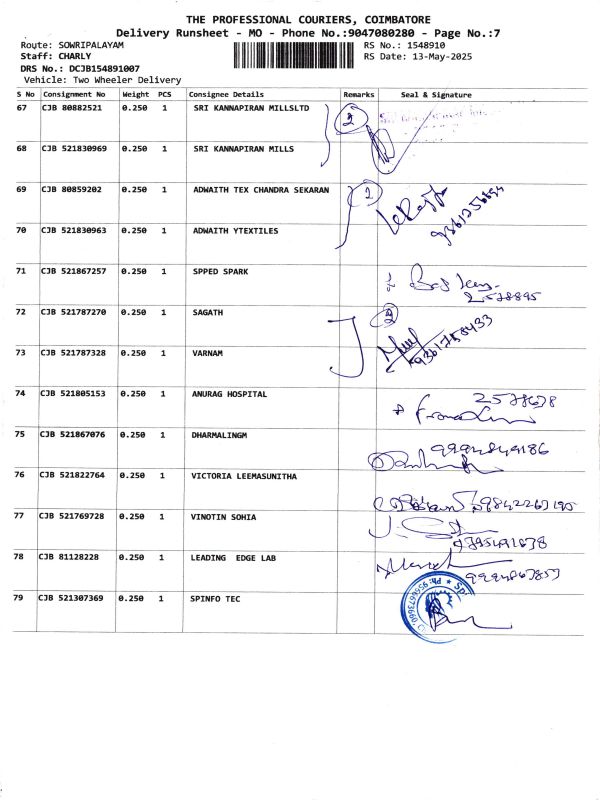 THE PROFESSIONAL COURIERS, COIMBATORE
Delivery Runsheet - MO - Phone No.:9047080280 - Page No.:7
Route: SOWRIPALAYAM RS No.: 1548910
Staff: CHARLY RS Date: 13-May-2025
DRS No.: DCJB154891007
Vehicle: Two Wheeler Delivery
S No Consignment No Weight PCS Consignee Details Remarks Seal & Signature
67 CJB 80882521 0.250 1 SRI KANNAPIRAN MILLSLTD 2
68 CJB 521830969 0.250 1 SRI KANNAPIRAN MILLS
69 CJB 80859202 0.250 1 ADWAITH TEX CHANDRA SEKARAN 2
70 CJB 521830963 0.250 1 ADWAITH YTEXTILES
71 CJB 521867257 0.250 1 SPPED SPARK
2578895
72 CJB 521787270 0.250 1 SAGATH
9361758433
73 CJB 521787328 0.250 1 VARNAM
74 CJB 521805153 0.250 1 ANURAG HOSPITAL 2578678
75 CJB 521867076 0.250 1 DHARMALINGM
76 CJB 521822764 0.250 1 VICTORIA LEEMASUNITHA
77 CJB 521769728 0.250 1 VINOTIN SOHIA
78 CJB 81128228 0.250 1 LEADING EDGE LAB
79 CJB 521307369 0.250 1 SPINFO TEC